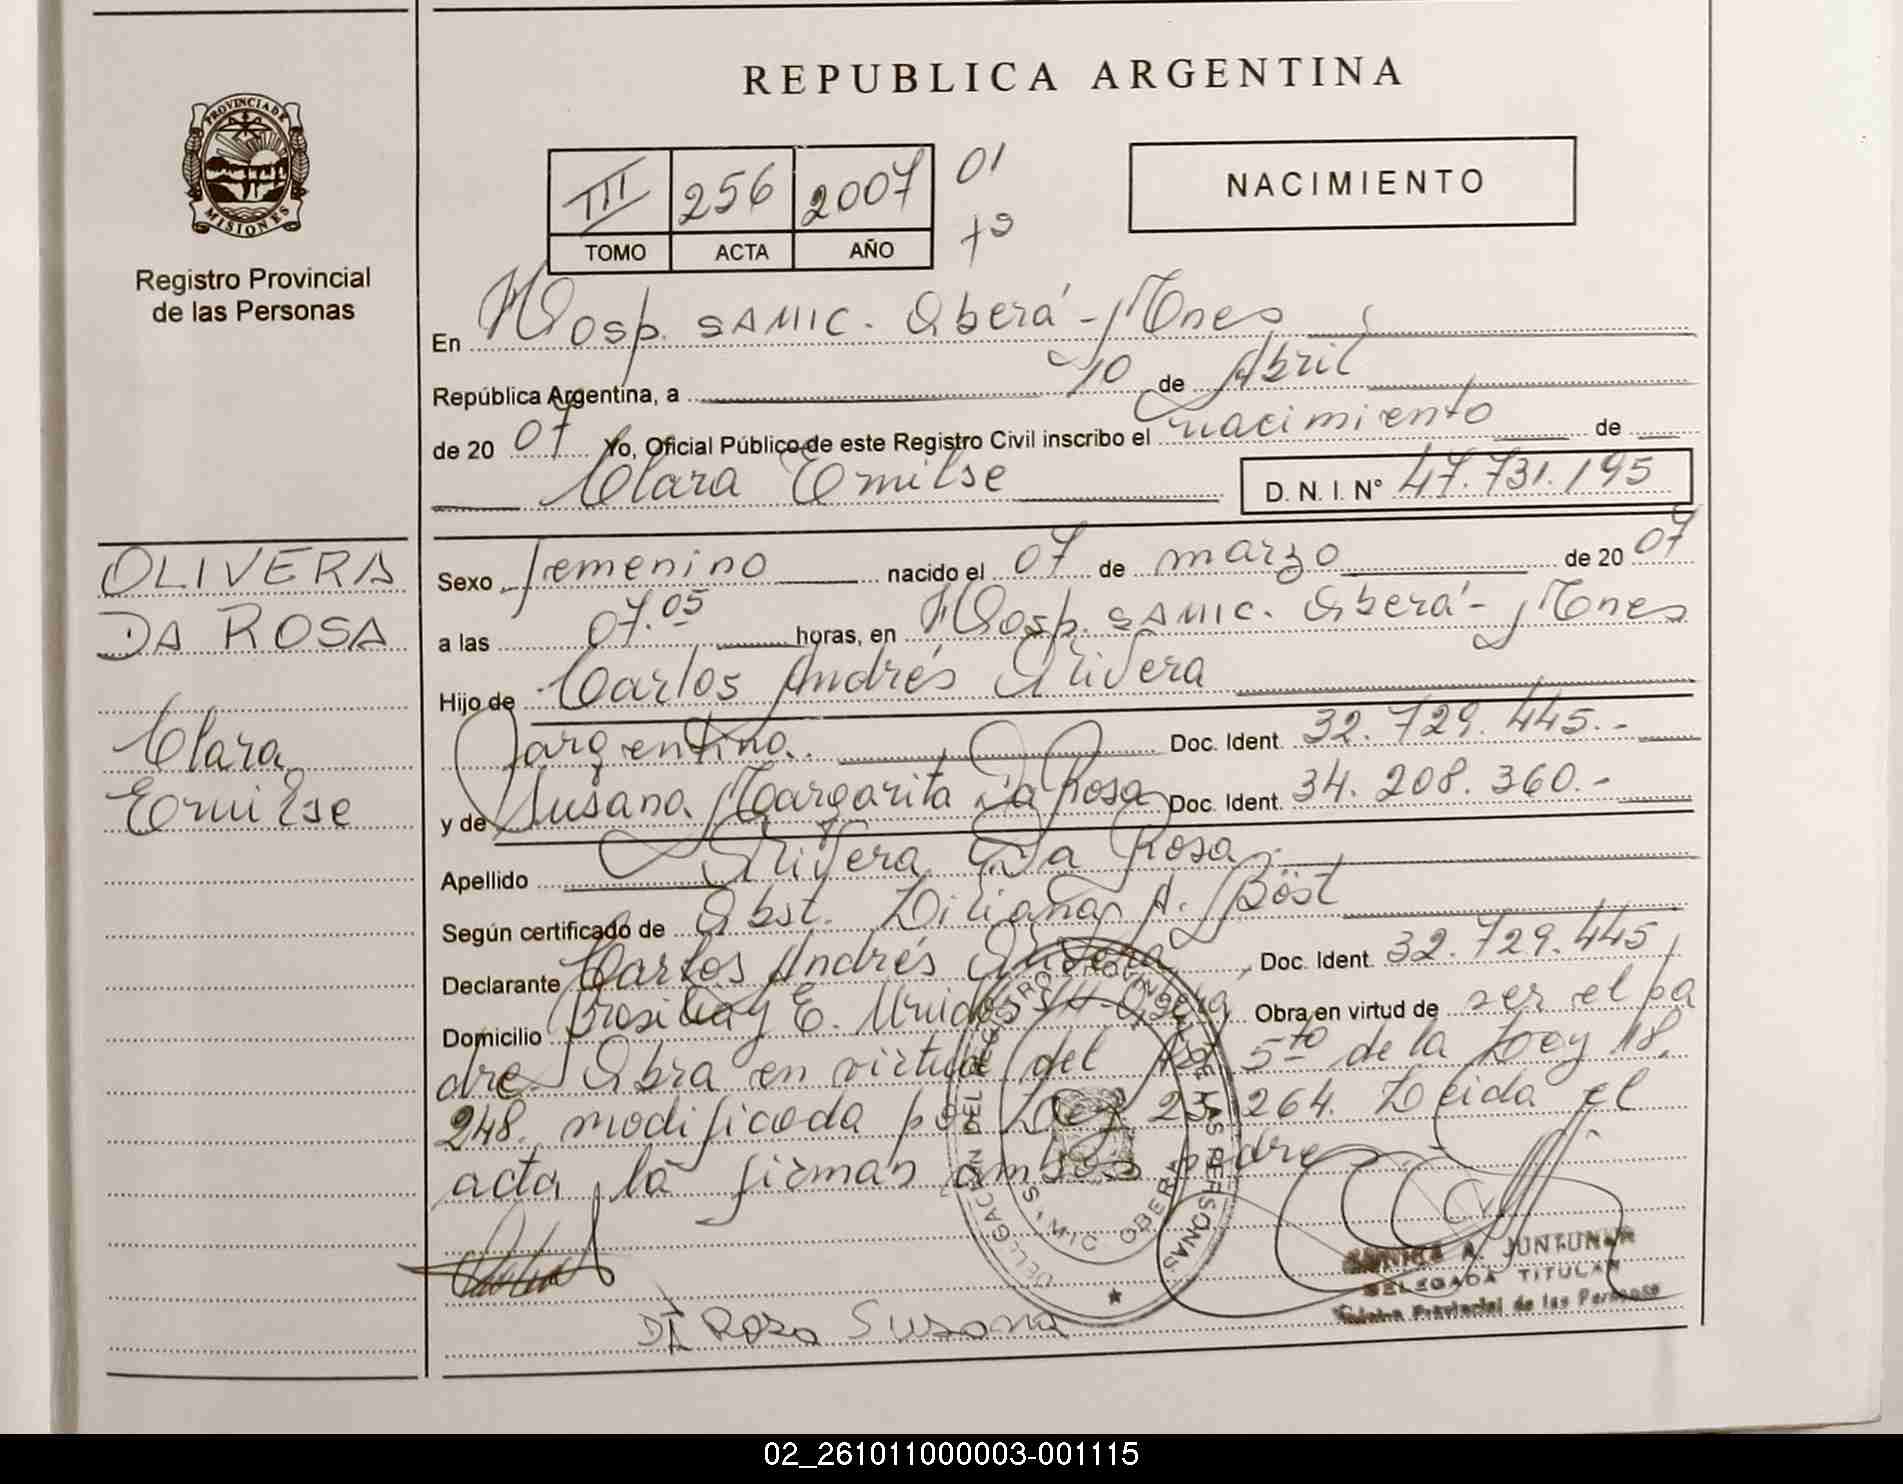 PROVINCIA DE
MISIONES
Registro Provincial
de las Personas
OLIVERA
DA ROSA
Clara
Emilse
REPUBLICA ARGENTINA
III 256 2007 01
TOMO ACTA AÑO
NACIMIENTO
En Hosp. SAMIC. Oberá - Mnes
República Argentina, a 10 de Abril
de 20 07 Yo, Oficial Público de este Registro Civil inscribo el nacimiento de
Clara Emilse D. N. I. N° 47.731.195
Sexo femenino nacido el 07 de marzo de 20 07
a las 07.05 horas, en Hosp. SAMIC. Oberá - Mnes
Hijo de Carlos Andrés Olivera
argentino. Doc. Ident. 32.729.445.-
y de Susana Margarita Da Rosa Doc. Ident. 34.208.360.-
Apellido Olivera Da Rosa.
Según certificado de Obst. Liliana A. Böst
Declarante Carlos Andrés Olivera, Doc. Ident. 32.729.445
Domicilio Brasil y E. Unidos S/N - Oberá Obra en virtud de ser el pa
dre. Obra en virtud del Art 5to de la Ley 18.
248. modificada por Ley 23.264. Leida el
acta, la firman ambos padres.
DELEGACION DEL REGISTRO PROVINCIAL DE LAS PERSONAS
SAMIC OBERA
DA Rosa Susana
A. JUNTUNEN
DELEGADA TITULAR
Provincial de las Personas
02_261011000003-001115